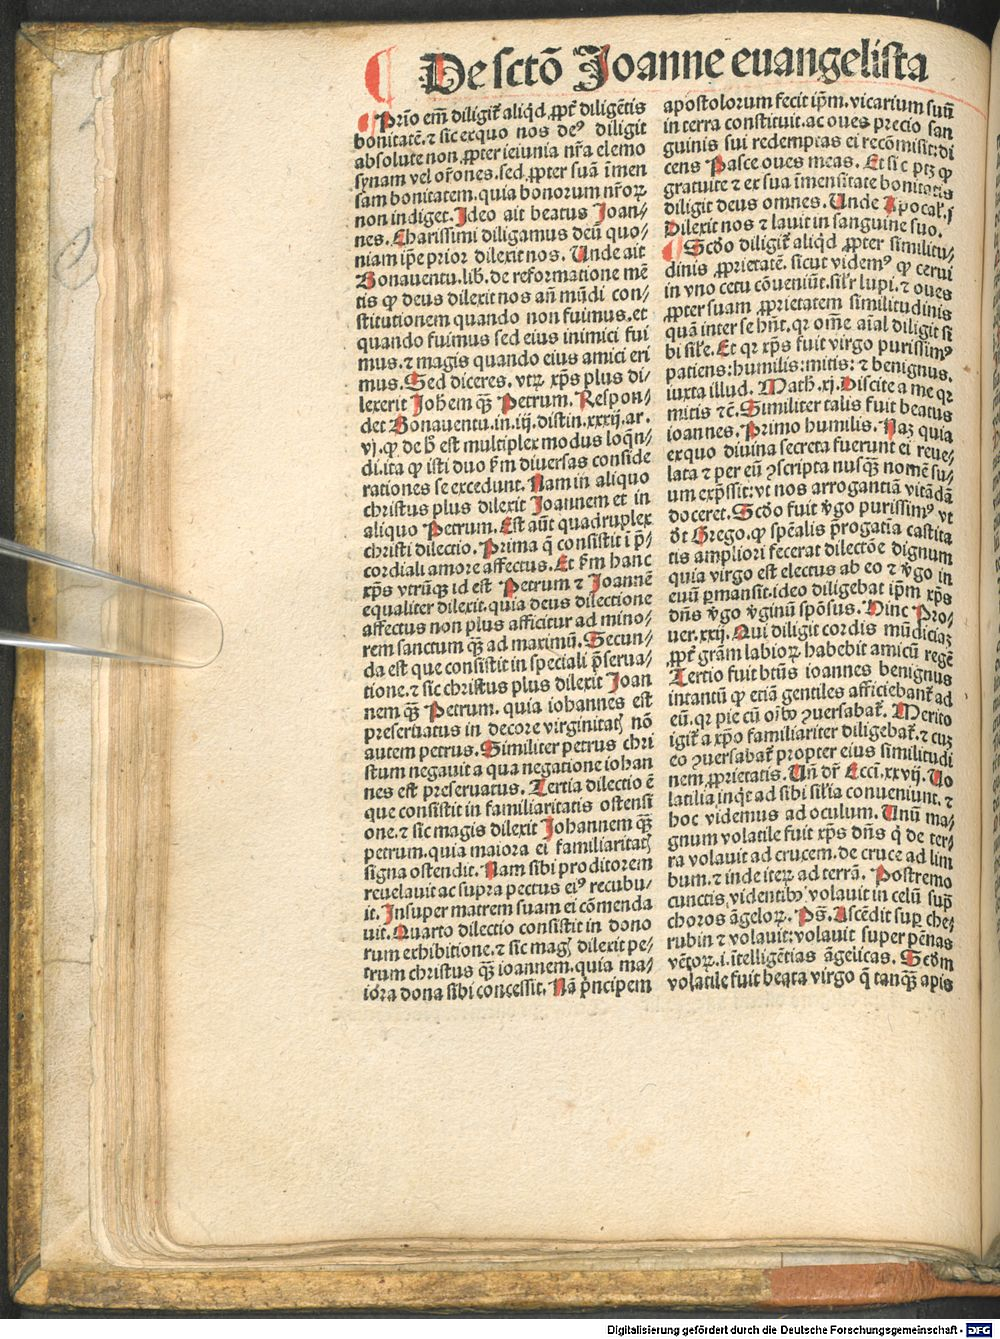 ¶ De sctō Joanne euangelista
Prīo em̄ diligit᷑ aliqd̄ ꝓpt̄ diligētis
bonitatē. ⁊ sic exquo nos deꝰ diligit
absolute non ꝓpter ieiunia nr̄a elemo
synam vel or̄ones. sed ꝓpter suā īmen
sam bonitatem. quia bonorum nr̄oꝝ
non indiget. Ideo ait beatus Joan⸗
nes. Charissimi diligamus deū quo⸗
niam ip̄e prior dilexit nos. Unde ait
Bonauentu. lib. de reformatione mē
tis ꝙ deus dilexit nos an̄ mūdi con⸗
stitutionem quando non fuimus. et
quando fuimus sed eius inimici fui
mus. ⁊ magis quando eius amici eri
mus. Sed diceres. vtꝝ xp̄s plus di⸗
lexerit Joh̄em qꝫ̄ Petrum. Respon⸗
det Bonauentu. in. iij. distin. xxxij. ar.
vj. ꝙ de h̄ est multiplex modus loqn̄⸗
di. ita ꝙ isti duo ẜm diuersas conside
rationes se excedunt. Nam in aliquo
christus plus dilexit Joannem et in
aliquo Petrum. Est aūt quadruplex
christi dilectio. Prima q̄ consistit ī p̄⸗
cordiali amore affectus. Et ẜm hanc
xp̄s vtrūqꝫ id est Petrum ⁊ Joannē
equaliter dilexit. quia deus dilectione
affectus non plus afficitur ad mino⸗
rem sanctum qꝫ̄ ad maximū. Secun⸗
da est que consistit in speciali p̄serua⸗
tione. ⁊ sic christus plus dilexit Joan
nem qꝫ̄ Petrum. quia iohannes est
preseruatus in decore virginitatꝭ nō
autem petrus. Similiter petrus chri
stum negauit a qua negatione iohan
nes est preseruatus. Tertia dilectio ē
que consistit in familiaritatis ostensi
one. ⁊ sic magis dilexit Johannem qꝫ̄
petrum. quia maiora ei familiaritatꝭ
signa ostendit. Nam sibi proditorem
reuelauit ac supra pectus eiꝰ recubu⸗
it. Insuper matrem suam ei cōmenda
uit. Quarto dilectio consistit in dono
rum exhibitione. ⁊ sic magꝭ dilexit pe⸗
trum christus qꝫ̄ ioannem. quia ma⸗
iora dona sibi concessit. Nā p̄ncipem
apostolorum fecit ip̄m. vicarium suū
in terra constituit. ac oues precio san
guinis sui redemptas ei recōmisit: di
cens Pasce oues meas. Et sic ptꝫ ꝙ
gratuite ⁊ ex sua īmensitate bonitatis
diligit deus omnes. Unde Apocal. j
Dilexit nos ⁊ lauit in sanguine suo.
¶ Scd̄o diligit᷑ aliqd̄ ꝓpter similitu⸗
dinis ꝓprietatē. sicut videmꝰ ꝙ cerui
in vno cetu cōueniūt. sil̄r lupi. ⁊ oues
ꝓpter suam ꝓprietatem similitudinis
quā inter se hn̄t. qꝛ om̄e aīal diligit si
bi sil̄e. Et qꝛ xp̄s fuit virgo purissimꝰ
patiens: humilis: mitis: ⁊ benignus.
iuxta illud. Math. xj. Discite a me qꝛ
mitis ⁊c̄. Similiter talis fuit beatus
ioannes. Primo humilis. Naꝫ quia
exquo diuina secreta fuerunt ei reue⸗
lata ⁊ per eū ꝯscripta nusqꝫ̄ nomē su⸗
um exp̄ssit: vt nos arrogantiā vitādā
doceret. Scd̄o fuit v̄go purissimꝰ vt
dt̄ Grego. ꝙ sp̄ealis p̄rogatia castita
tis ampliori fecerat dilectōe dignum
quia virgo est electus ab eo ⁊ v̄go in
euū ꝑmansit. ideo diligebat ip̄m xp̄s
dn̄s v̄go v̄ginū spōsus. Hinc Pro⸗
uer. xxij. Qui diligit cordis mūdiciaꝫ
ꝓpt̄ grām labioꝝ habebit amicū regē
Tertio fuit bt̄us ioannes benignus
intantū ꝙ etiā gentiles afficiebant᷑ ad
eū. qꝛ pie cū oībꝰ ꝯuersabat᷑. Merito
igit᷑ a xp̄o familiariter diligebat᷑. ⁊ cuꝫ
eo ꝯuersabat᷑ propter eius similitudi
nem ꝓprietatis. Un̄ dr̄ Ecci. xxvij. Uo
latilia inqt̄ ad sibi sil̄ia conueniunt. ⁊
hoc videmus ad oculum. Unū ma⸗
gnum volatile fuit xp̄s dn̄s q̄ de ter⸗
ra volauit ad crucem. de cruce ad lim
bum. ⁊ inde iteꝝ ad terrā. Postremo
cunctis videntibꝰ volauit in celū sup̄
choros āgeloꝝ. Ps̄. Ascēdit suꝑ che⸗
rubin ⁊ volauit: volauit super pēnas
vētoꝝ. i. ītelligētias āgelicas. Scd̄m
volatile fuit beata virgo q̄ tanqꝫ̄ apis
Digitalisierung gefördert durch die Deutsche Forschungsgemeinschaft - DFG